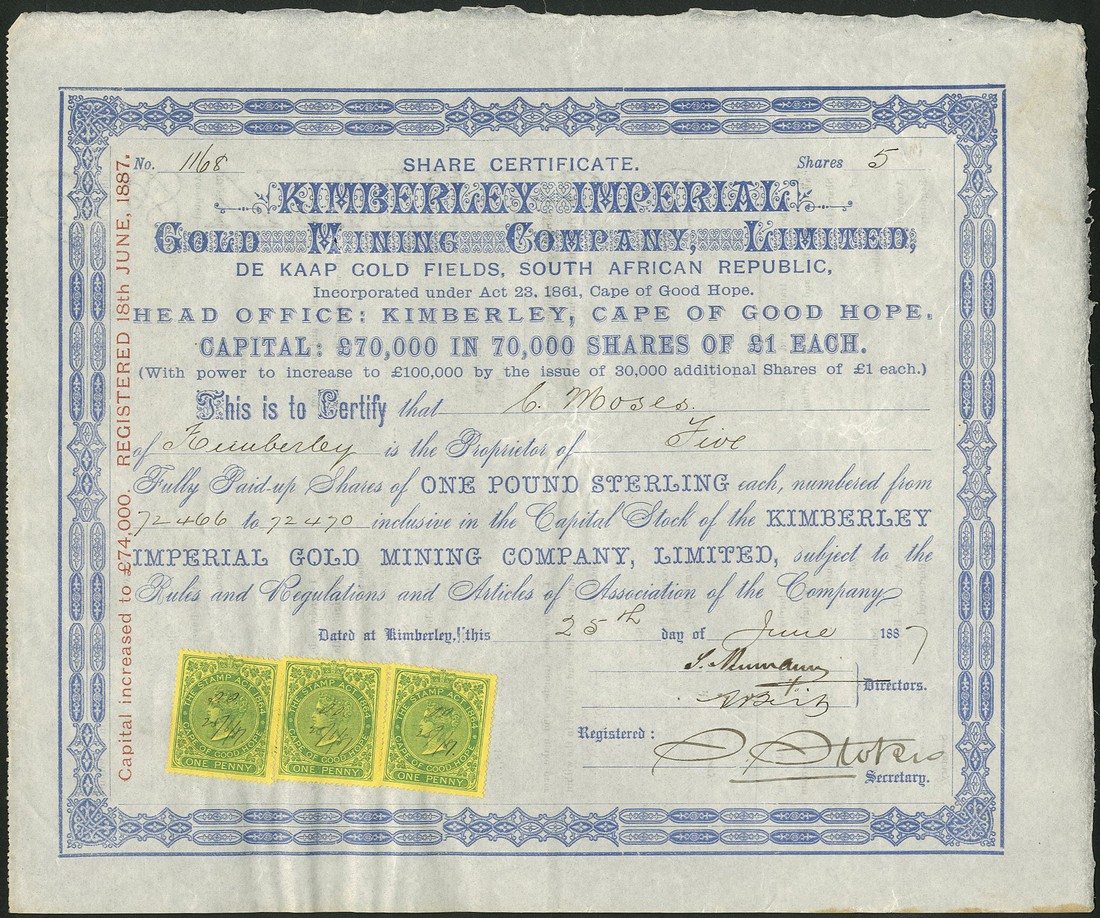 No. 1168 SHARE CERTIFICATE. Shares 5
KIMBERLEY IMPERIAL
GOLD MINING COMPANY, LIMITED,
DE KAAP GOLD FIELDS, SOUTH AFRICAN REPUBLIC,
Incorporated under Act 23, 1861, Cape of Good Hope.
HEAD OFFICE: KIMBERLEY, CAPE OF GOOD HOPE.
CAPITAL: £70,000 IN 70,000 SHARES OF £1 EACH.
(With power to increase to £100,000 by the issue of 30,000 additional Shares of £1 each.)
This is to Certify that C. Moses
of Kimberley is the Proprietor of Five
Fully Paid-up Shares of ONE POUND STERLING each, numbered from
72466 to 72470 inclusive in the Capital Stock of the KIMBERLEY
IMPERIAL GOLD MINING COMPANY, LIMITED, subject to the
Rules and Regulations and Articles of Association of the Company
Dated at Kimberley, this 25th day of June 1887
Directors.
Registered:
Secretary.
Capital increased to £74,000. REGISTERED 18th JUNE, 1887.
THE STAMP ACT 1864
CAPE OF GOOD HOPE
ONE PENNY
THE STAMP ACT 1864
CAPE OF GOOD HOPE
ONE PENNY
THE STAMP ACT 1864
CAPE OF GOOD HOPE
ONE PENNY